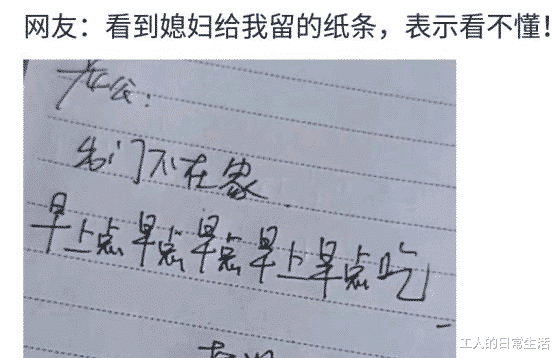 网友：看到媳妇给我留的纸条，表示看不懂！
老公：
出门不在家.
早上点早点早点早上早点吃
工人的日常生活